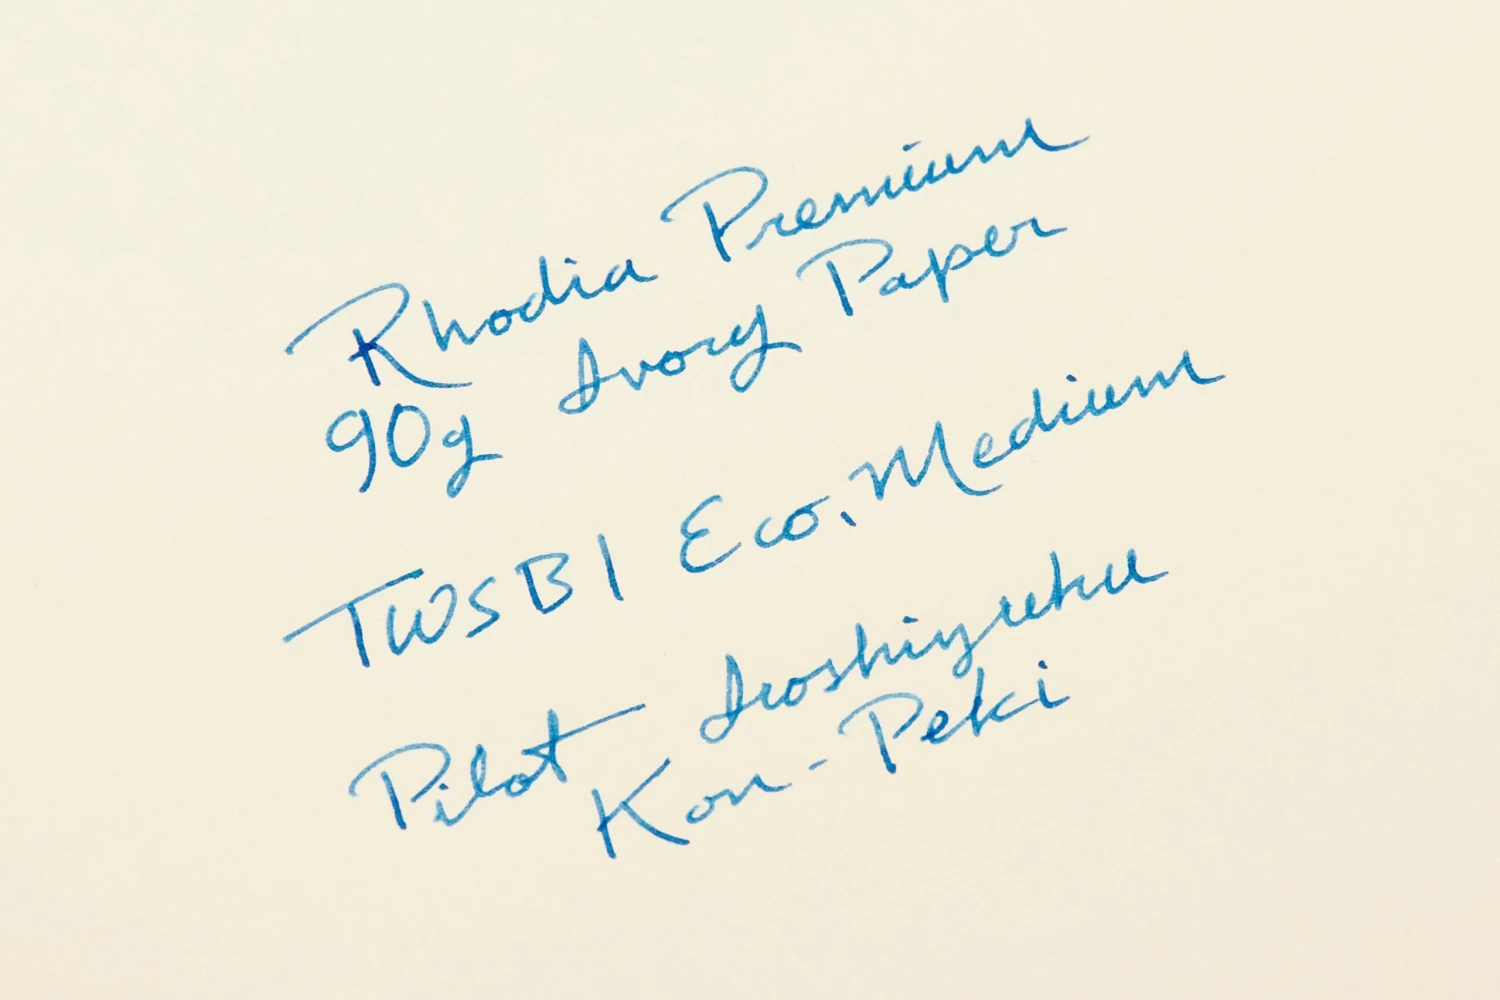 Rhodia Premium
90g Ivory Paper
TWSBI Eco, Medium
Pilot Iroshizuku
Kon-Peki